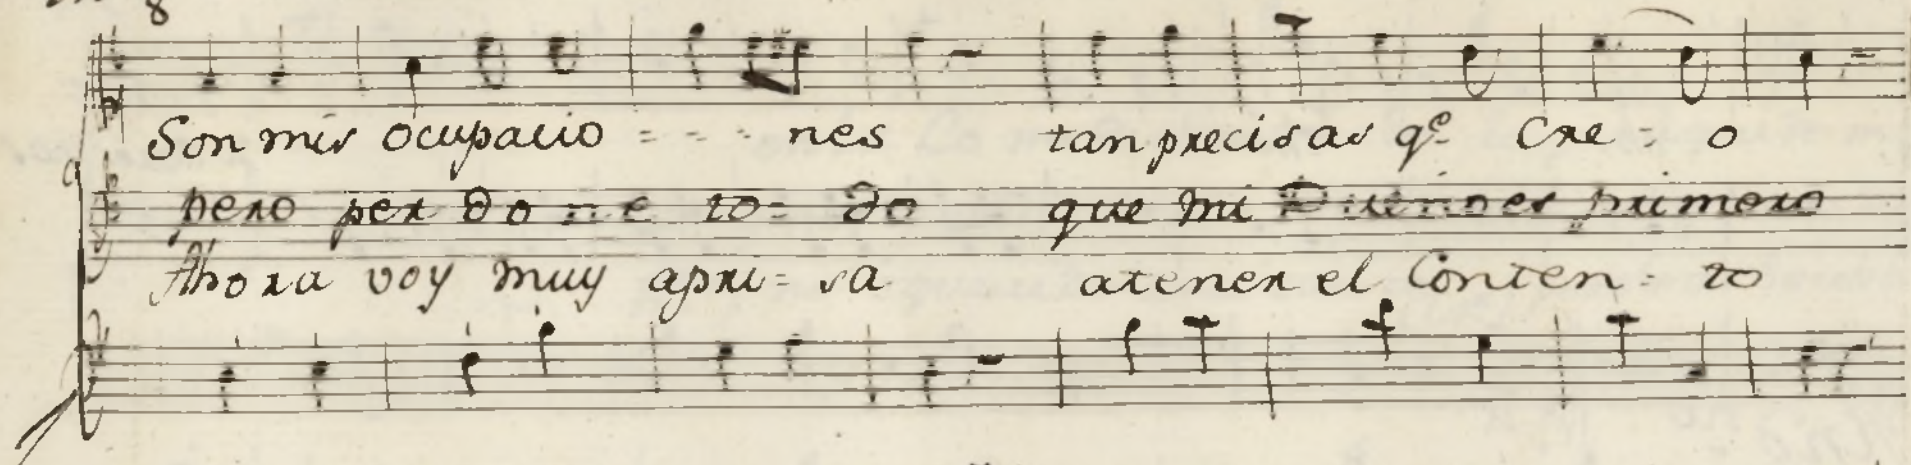 Son mis ocupacio = - - nes tan precisas qe. Cre - o
pero perdone to - do que mi Dueño es primero
Ahora voy muy apri - sa atener el Conten - to